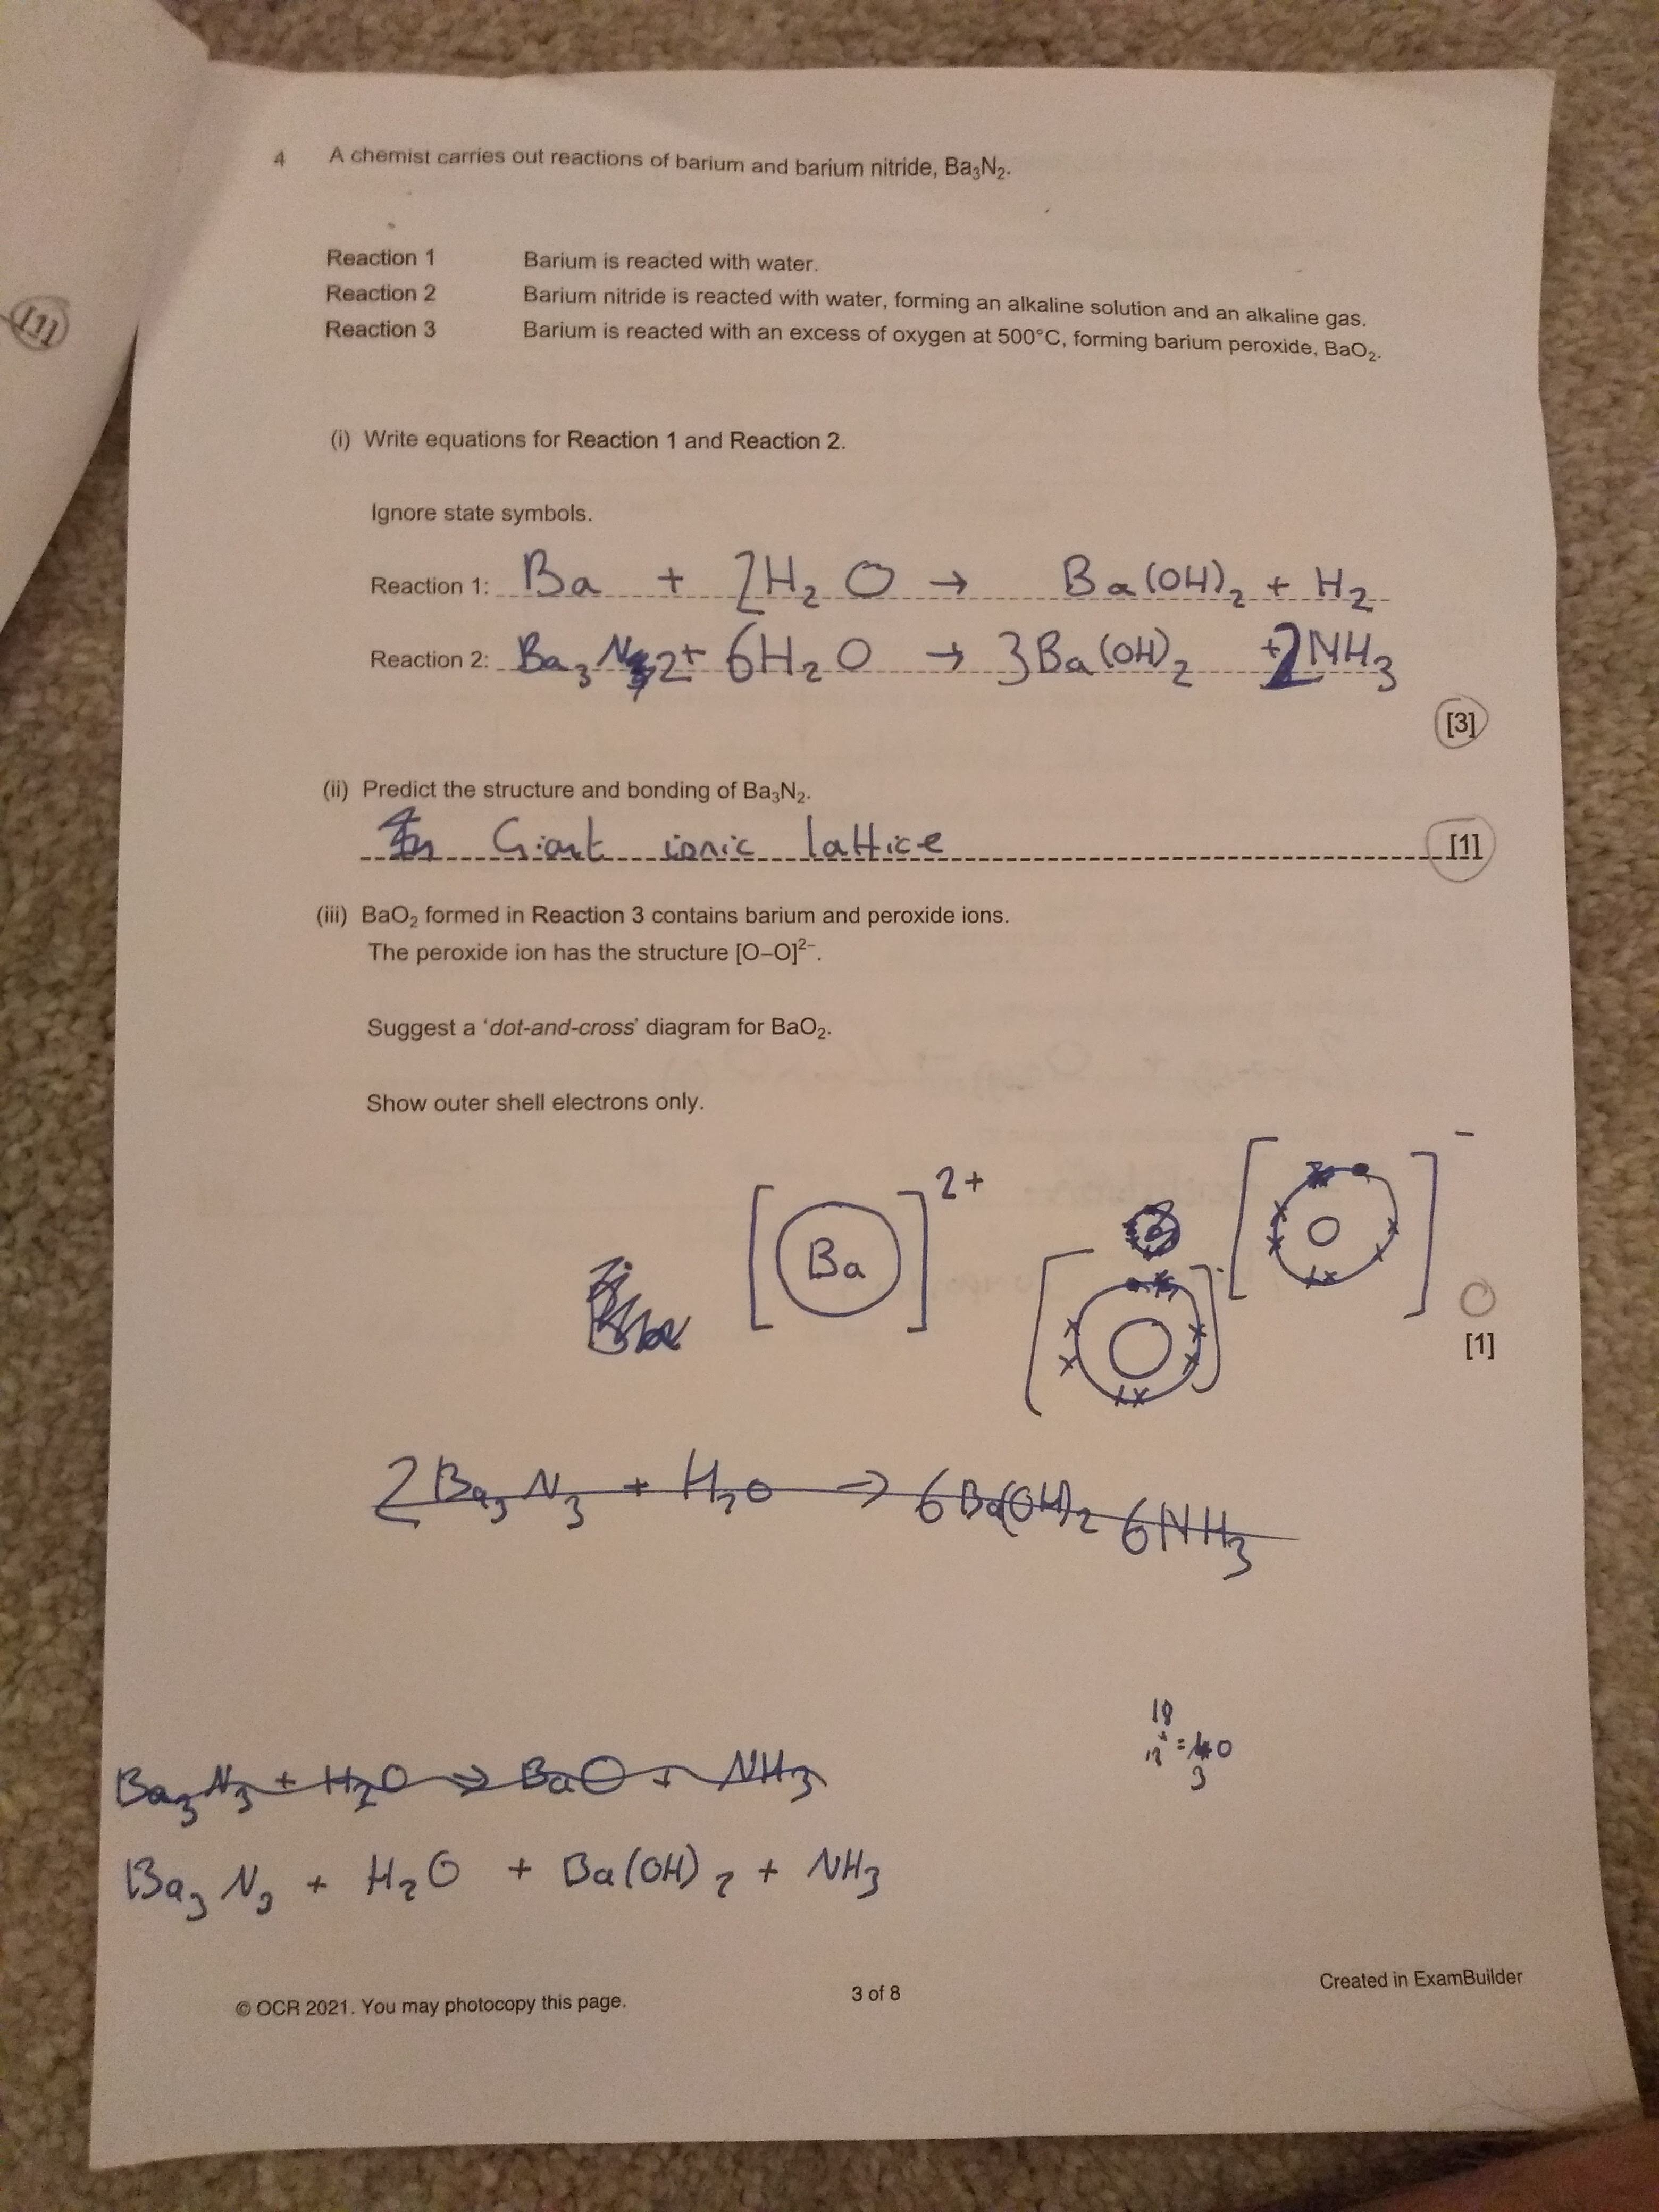 [1]
4 A chemist carries out reactions of barium and barium nitride, Ba₃N₂.
Reaction 1 Barium is reacted with water.
Reaction 2 Barium nitride is reacted with water, forming an alkaline solution and an alkaline gas.
Reaction 3 Barium is reacted with an excess of oxygen at 500°C, forming barium peroxide, BaO₂.
(i) Write equations for Reaction 1 and Reaction 2.
Ignore state symbols.
Reaction 1: Ba + 2H₂O → Ba(OH)₂ + H₂
Reaction 2: Ba₃N₂ + 6H₂O → 3Ba(OH)₂ + 2NH₃
[3]
(ii) Predict the structure and bonding of Ba₃N₂.
Giant ionic lattice [1]
(iii) BaO₂ formed in Reaction 3 contains barium and peroxide ions.
The peroxide ion has the structure [O–O]²⁻.
Suggest a 'dot-and-cross' diagram for BaO₂.
Show outer shell electrons only.
[Ba]²⁺ [O]⁻ [O]⁻
[1]
2Ba₃N₃ + H₂O → 6Ba(OH)₂ 6NH₃
Ba₃N₃ + H₂O → BaO + NH₃
Ba₃N₃ + H₂O + Ba(OH)₂ + NH₃
© OCR 2021. You may photocopy this page. 3 of 8 Created in ExamBuilder